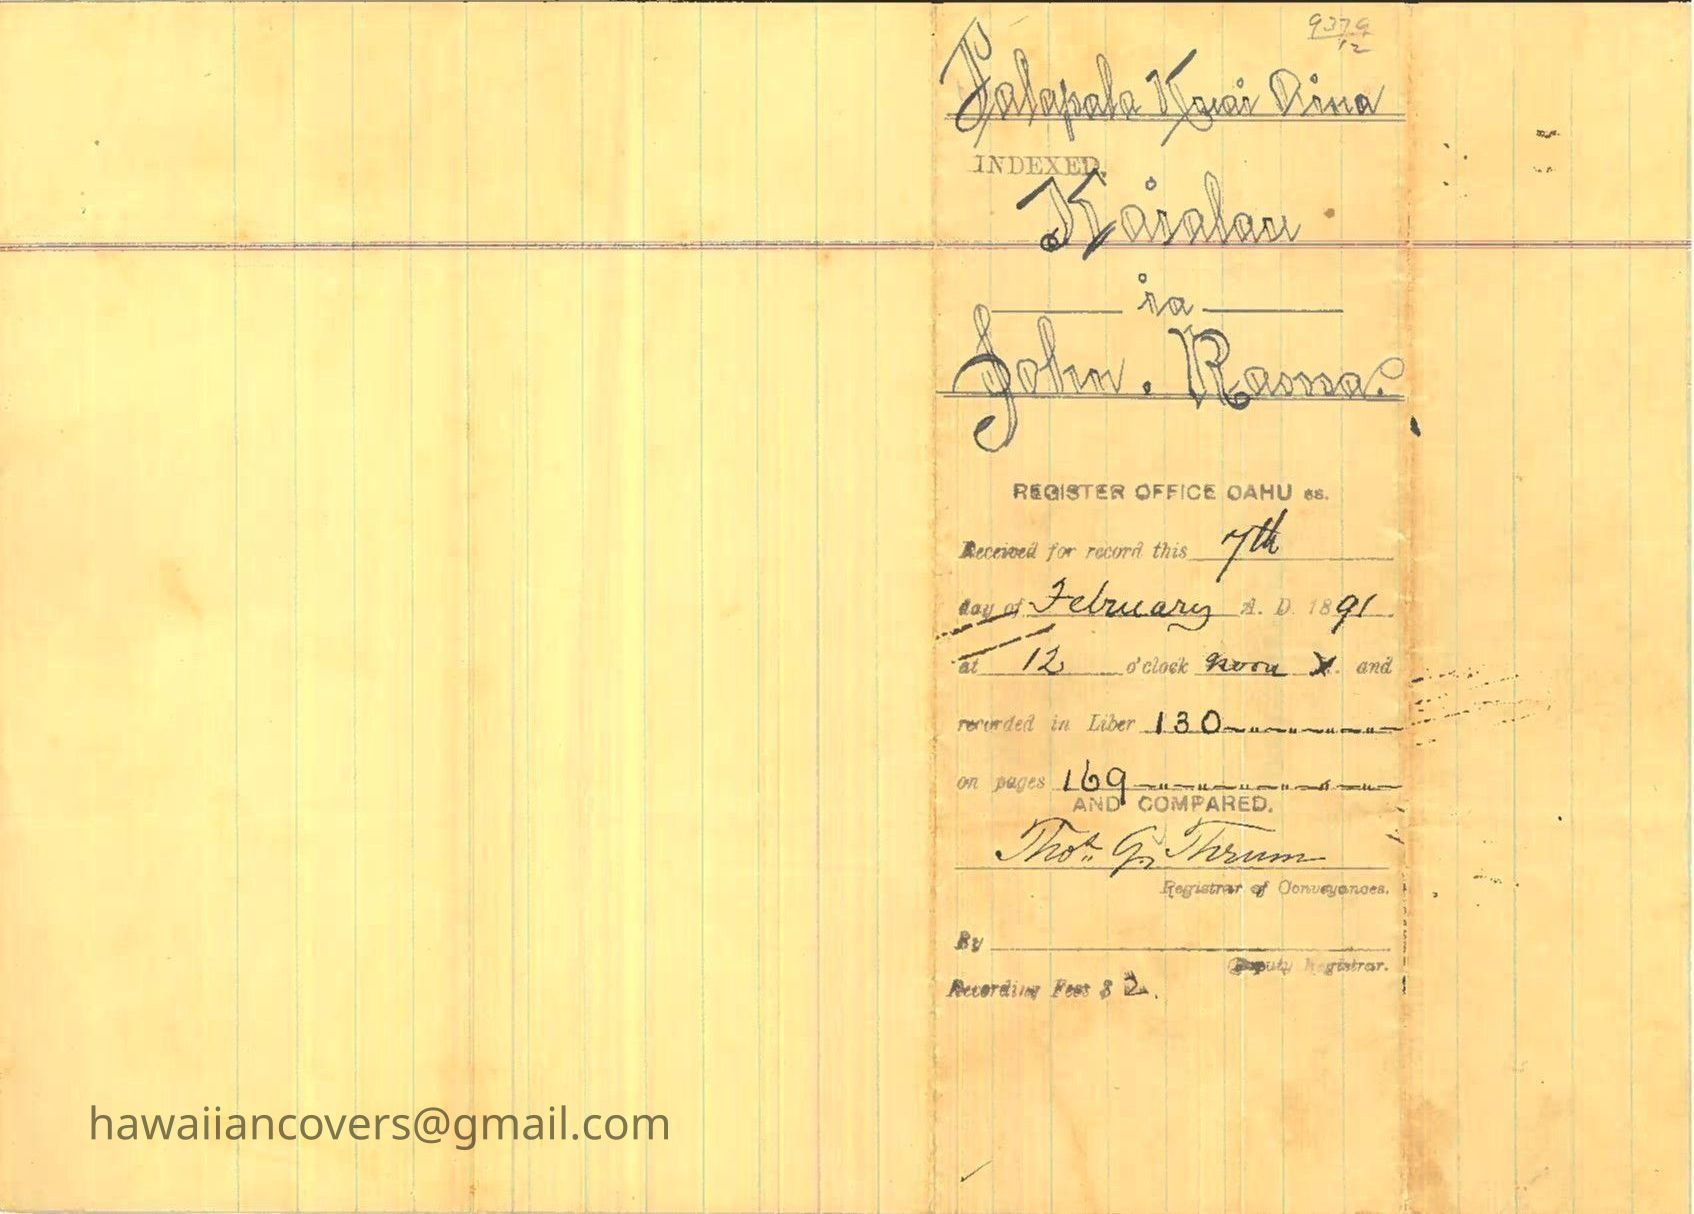 9379
12
Palapala Kuai Aina
INDEXED.
Kaialau
ia
John. Kaona.
REGISTER OFFICE OAHU ss.
Received for record this 7th
day of February A. D. 1891
at 12 o'clock noon and
recorded in Liber 130
on pages 169
AND COMPARED.
Thos. G. Thrum
Registrar of Conveyances.
By
Deputy Registrar.
Recording Fees $ 2.
hawaiiancovers@gmail.com